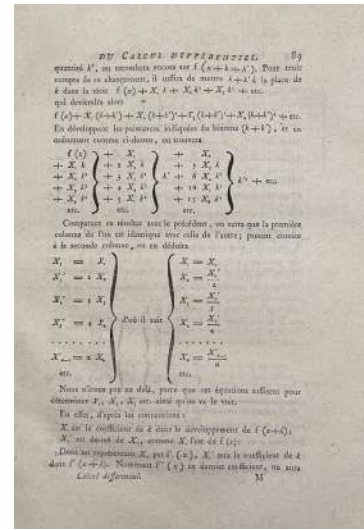 DU CALCUL DIFFÉRENTIEL. 89
quantité k', on retombera encore sur f (x + k + k'). Pour tenir
compte de ce changement, il suffira de mettre k + k' à la place de
k dans la série f (x) + X₁ k + X₂ k² + X₃ k³ + etc.
qui deviendra alors
f (x) + X₁ (k+k') + X₂ (k+k')² + X₃ (k+k')³ + X₄ (k+k')⁴ + etc.
En développant les puissances indiquées du binome (k+k'), et en
ordonnant comme ci-dessus, on trouvera
f (x) + X₁ + X₂
+ X₁ k + 2 X₂ k + 3 X₃ k
+ X₂ k² + 3 X₃ k² k' + 6 X₄ k² k'² + etc.
+ X₃ k³ + 4 X₄ k³ + 10 X₅ k³
+ X₄ k⁴ + 5 X₅ k⁴ + 15 X₆ k⁴
etc. etc. etc.
Comparant ce résultat avec le précédent, on verra que la première
colonne de l'un est identique avec celle de l'autre; passant ensuite
à la seconde colonne, on en déduira
X₁ = X₁ X₁ = X₁
X₁' = 2 X₂ X₂ = X₁'/2
X₂' = 3 X₃ d'où il suit X₃ = X₂'/3
X₃' = 4 X₄ X₄ = X₃'/4
. . . . . . . . . . . . . .
X'ₙ₋₁ = n Xₙ Xₙ = X'ₙ₋₁/n
etc. etc.
Nous n'irons pas au delà, parce que ces équations suffisent pour
déterminer X₂, X₃, X₄ etc. ainsi qu'on va le voir.
En effet, d'après les conventions :
X₁ est le coefficient de k dans le développement de f (x+k),
X₁' est dérivé de X₁, comme X₁ l'est de f (x) :
Donc en représentant X₁ par f' (x), X₁' sera le coefficient de k
dans f' (x+k). Nommant f'' (x) ce dernier coefficient, on aura
Calcul différentiel. M